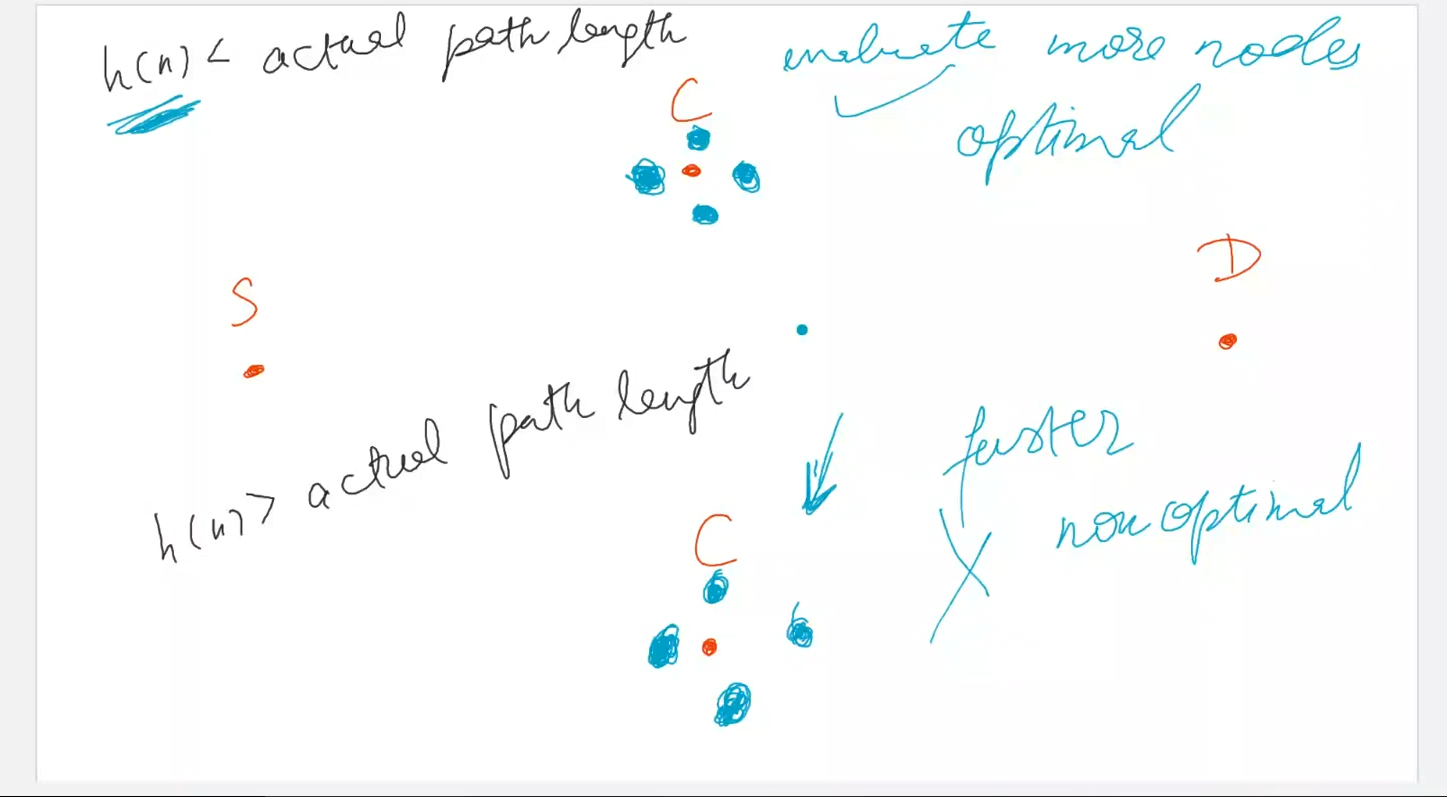 h(n) < actual path length
evaluate more nodes
optimal
C
S
D
h(n) > actual path length
faster
non optimal
C